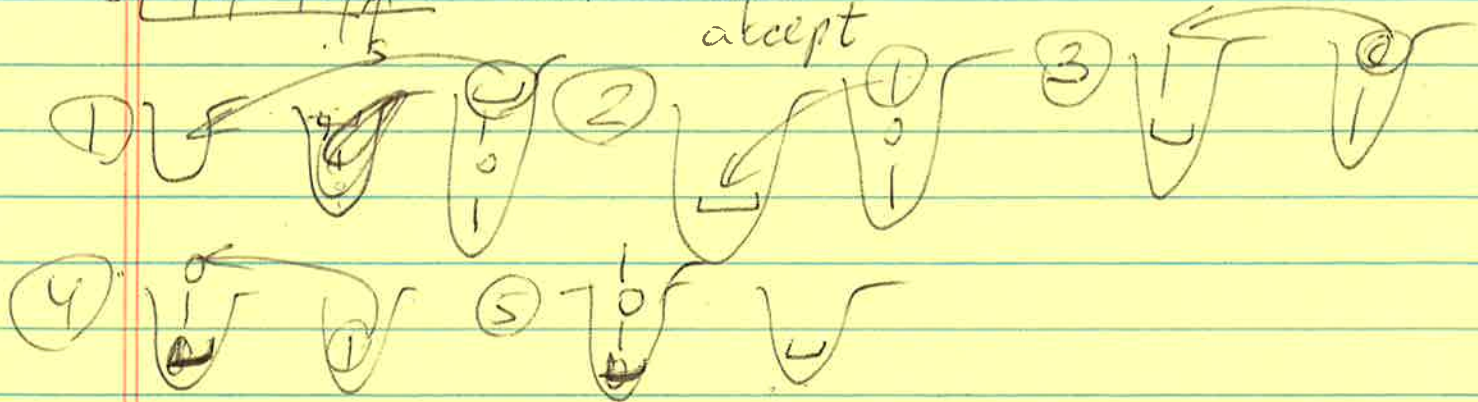 accept
① ␣ 1 0 1 ② ␣ 1 0 1 ③ 1 ␣ 0 1
④ 0 1 ␣ 1 ⑤ 1 0 1 ␣ ␣